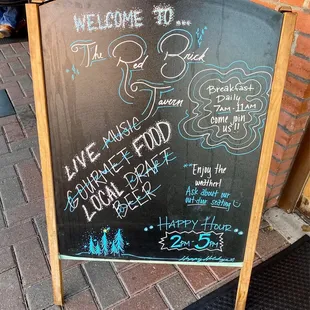 WELCOME TO...
The Red Brick
Tavern
BREAKFAST
DAILY
7AM-11AM
come join
us!!
LIVE MUSIC
GOURMET FOOD
LOCAL DRAFT
BEER
"Enjoy the
weather!
Ask about our
outdoor seating
HAPPY HOUR
2PM-5PM
Happy Holidays